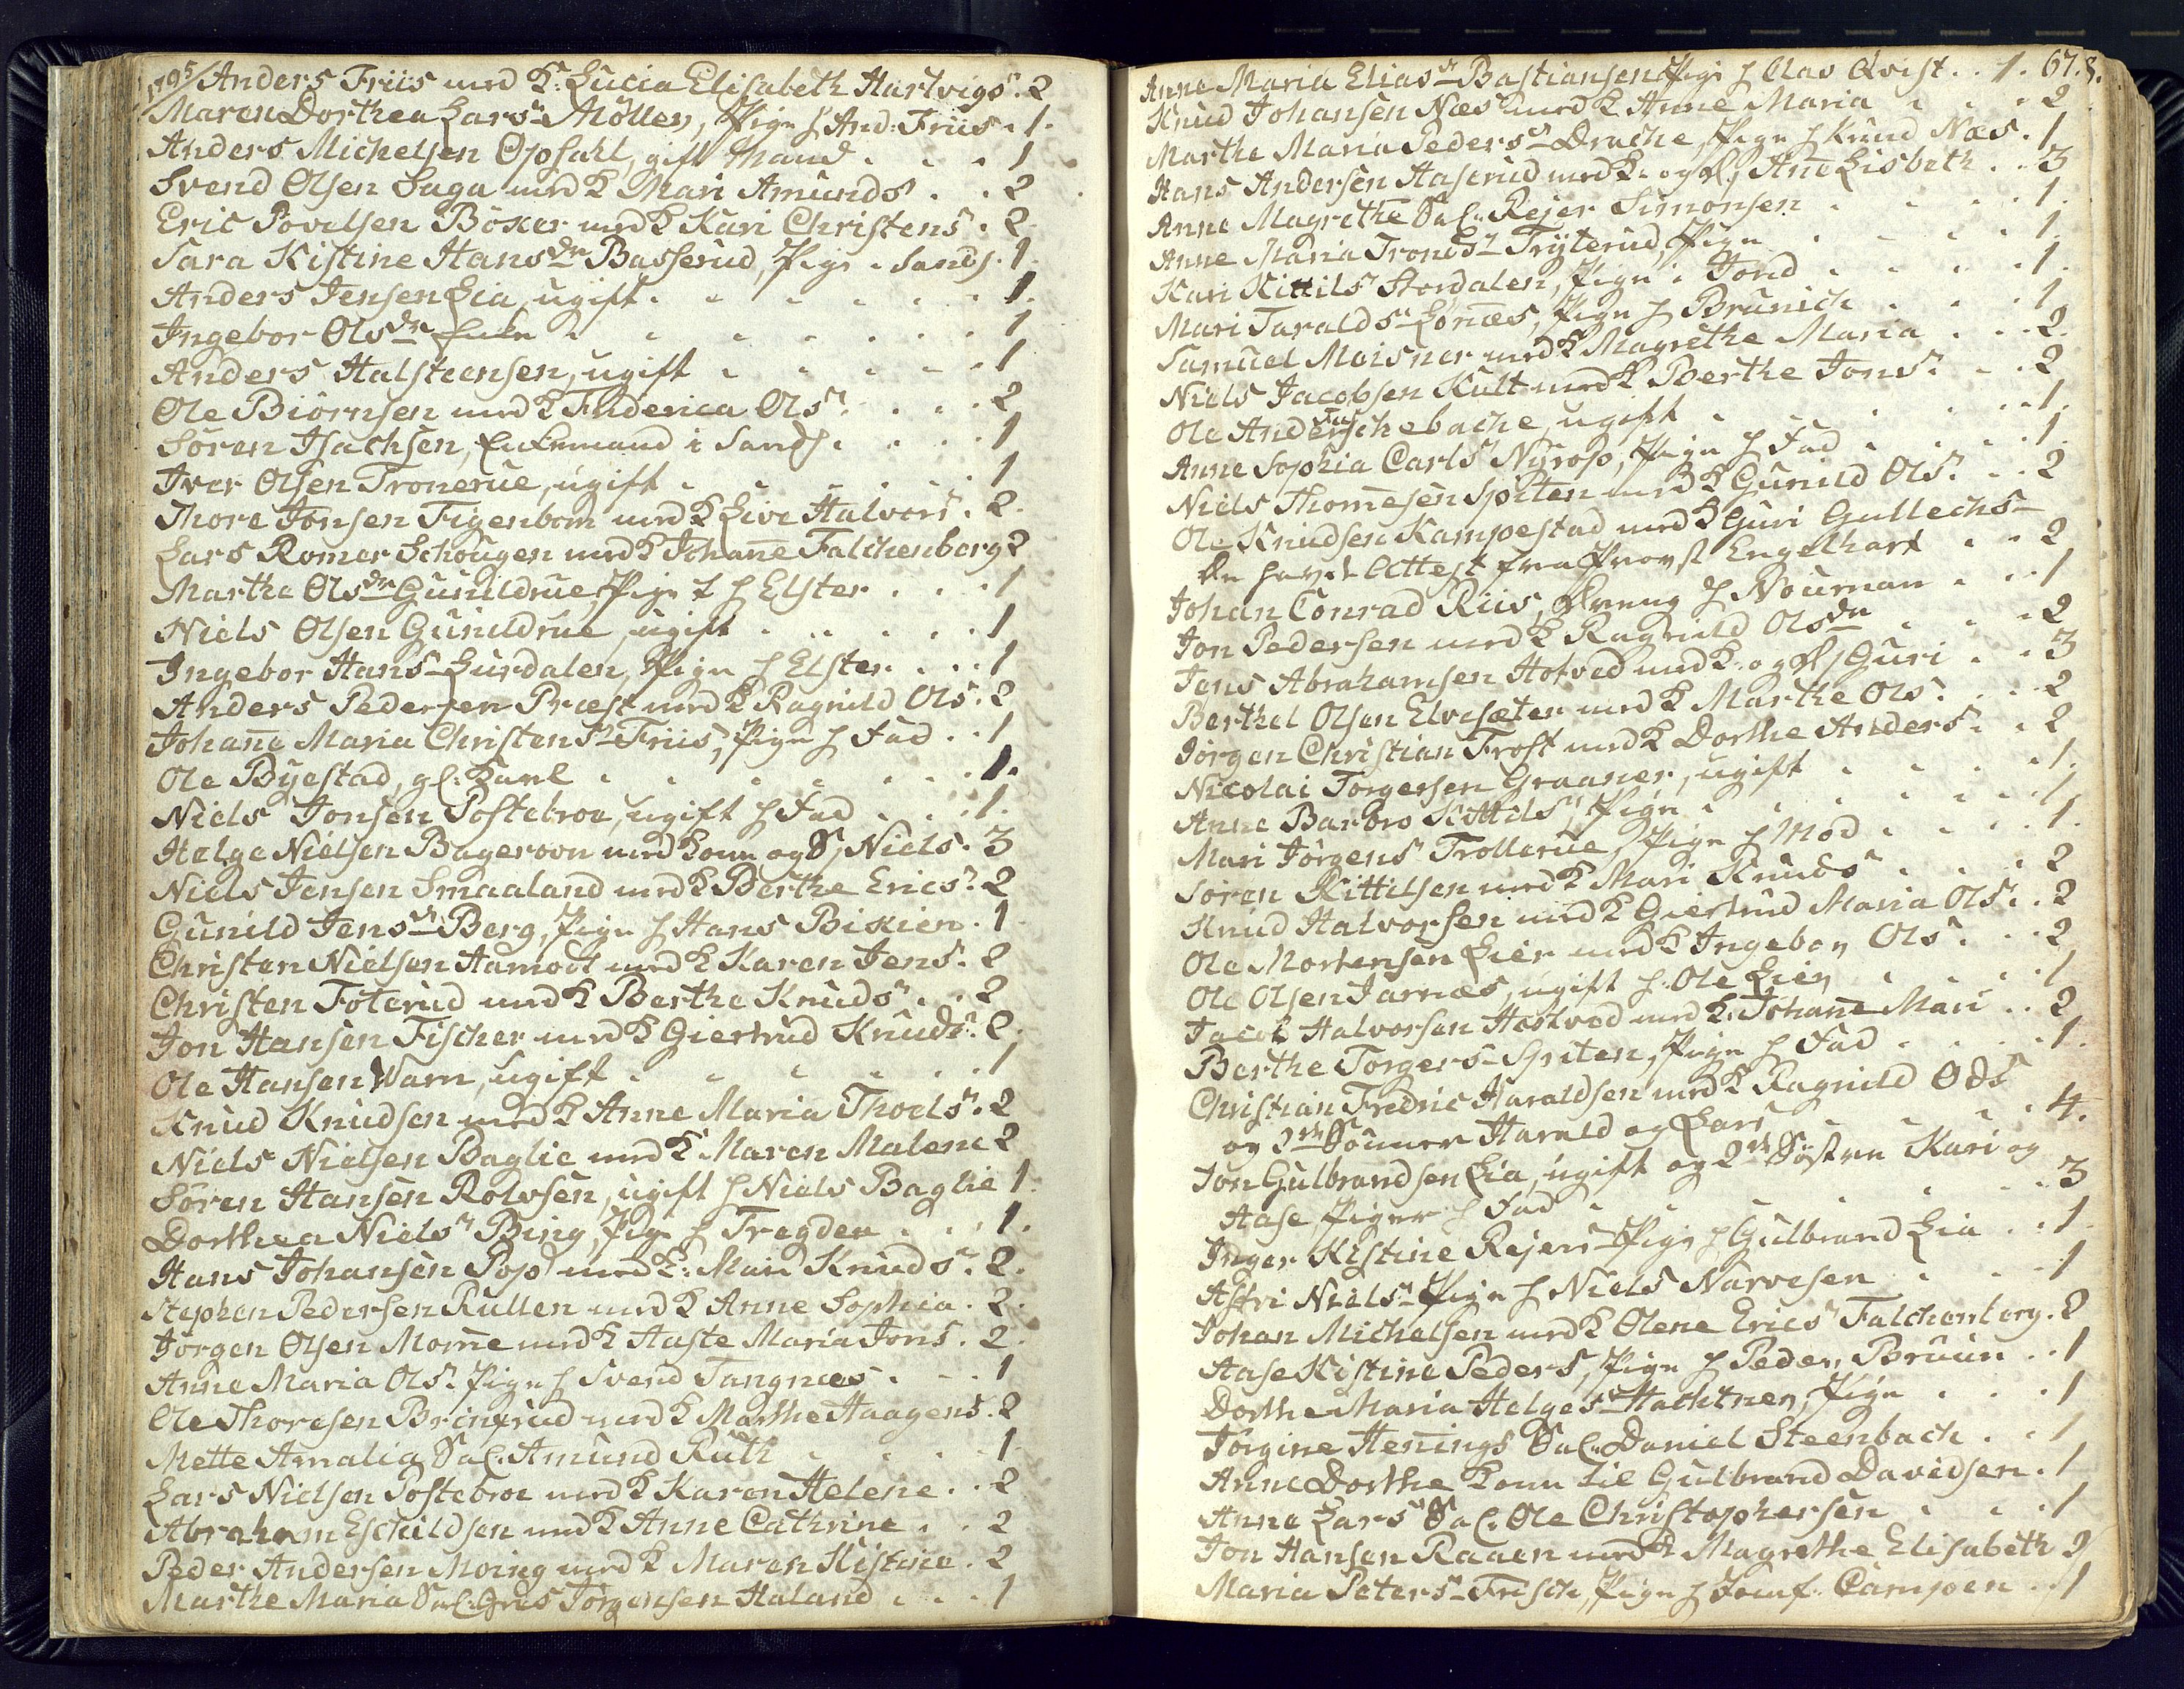 1795/ Anders Friis med K: Lucia Elisabeth Hartvigs: 2
Maren Dorthea Larsdr Möller, Pige h And: Friis . 1.
Anders Michelsen Opsahl, gift Mand . . . 1
Svend Olsen Saga med K Mari Amunds . . 2
Eric Povelsen Böxer med K Kari Christens . 2
Sara Kistine Hansdr Basserud, Pige i Sands. 1
Anders Jensen Lia, ugift . . . . . . 1.
Ingebor Olsdr Enke . . . . . . 1
Anders Halsteensen, ugift . . . . . 1
Ole Biörnsen med K Friderica Olsdr . . . 2
Sören Isachsen, Enkemand i Sands . . . 1
Iver Olsen Tronerue, ugift . . . . . 1
Thore Jonsen Figenbom med K Live Halvors . 2.
Lars Romer Schougen med K Johanne Falchenberg 2
Marthe Olsdr Gunildrue, Pige h Elster . . . 1
Niels Olsen Gunildrue, ugift . . . . . 1
Ingebor Hansdr Lurdalen, Pige h Elster . . . 1
Anders Pedersen Præst med K Ragnild Ols . 2
Johanne Maria Christensdr Friis, Pige h Fad . . 1
Ole Byestad, gl: Karl . . . . . . 1.
Niels Jonsen Postebroe, ugift h Fad . . . 1.
Helge Nielsen Bagerovn med Kone og S, Niels . 3
Niels Jensen Smaaland med K Berthe Erics . 2
Gunild Jensdr Berg, Pige h Hans Bikien . 1
Christen Nielsen Aamodt med K Karen Jens . 2
Christen Foterud med K Berthe Knudsdr . . 2
Jon Hansen Fischer med K Giertrud Knuds . 2
Ole Hansen Warn, ugift . . . . . 1
Knud Knudsen med K Anne Maria Thoelsdr . 2
Niels Nielsen Baglie med K Maren Malene 2
Sören Hansen Rolvsen, ugift h Niels Baglie 1.
Dorthea Nielsdr Bing, Pige h Tregden . . . 1.
Hans Johansen Pop med K. Mari Knuds . 2.
Stephen Pedersen Rullen med K Anne Sophia . 2.
Jörgen Olsen Morne med K Aaste Maria Jons . 2.
Anne Maria Olsdr Pige h Svend Tangnæs . . . 1
Ole Thoresen Bringsrud med K Marthe Haagens . 2
Mette Amalia Sal. Amund Ruth . . . . 1
Lars Nielsen Postebroe med K Karen Helene . . 2
Abraham Eschildsen med K Anne Cathrine . . 2
Peder Andersen Moing med K Maren Kistine . 2
Marthe Maria Sal. Jörgensen Haland . . . 1
Anne Maria Eliasdr Bastiansen Pige h Claus Qvist . . 1. 67.8.
Knud Johansen Næs med K Anne Maria . . . 2
Marthe Maria Pedersdr Drache, Pige h Knud Næs . 1
Hans Andersen Haserud med K. og Anne Lisbeth . . 3
Anne Magrethe Sal. Rejer Simonsen . . . . 1.
Anne Maria Trondsdr Tryterud, Pige . . . . 1.
Kari Kittilsdr Stordalen, Pige i Fond . . . . 1.
Mari Taraldsdr Lonæs, Pige h Brunich . . . 1
Samuel Moisner med K Magrethe Maria . . . 2.
Niels Jacobsen Kult med K Berthe Jonsdr . . 2
Ole Andersen Fuschebache, ugift . . . . . 1.
Anne Sophia Carlsdr Nyrop, Pige h Fad . . . . 1.
Niels Thomesen Spiten med K Gunild Olsdr . . 2
Ole Knudsen Kampestad med K Guri Gullechsdr
De havde Attest fra Provst Engelhart . . 2
Johan Conrad Riis, Dreng h Nouman . . . 1
Jon Pedersen med K Ragnild Olsdr . . . 2
Jens Abrahamsen Hotved med K. og Guri . . 3
Berthel Olsen Elvesæter med K Marthe Ols . . . 2
Jörgen Christian Frost med K Dorthe Anders . . 2
Nicolai Torgersen Graaner, ugift . . . . 1.
Anne Barbro Kittilsdr, Pige . . . . . 1.
Mari Jörgensdr Trollerue, Pige h Mod . . . . 1.
Sören Kittilsen med K Mari Knuds . . . . 2
Knud Halvorsen med K Giertrud Maria Ols . . 2
Ole Mortensen Lier med K Ingebor Ols . . . 2
Ole Olsen Jarnæs, ugift h. Ole Lier . . . . 1
Jacob Halvorsen Hostved med K. Johanne Mari . . 2
Berthe Torgersdr Spiten, Pige h Fad . . . . 1.
Christian Fredric Haraldsen med K Ragnild Odsdr
og 2de Sönner Harald og Lars . . . . 4.
Jon Gulbrandsen Lia, ugift og 2de Söstre Kari og
Aase, Piger h Fad . . . . . . 3
Inger Kistine Rejersdr Pige h Gulbrand Lia . . 1
Astri Nielsdr Pige h Niels Narvesen . . . 1
Johan Michelsen med K Olene Ericsdr Falchenberg . 2
Aase Kistine Peders, Pige h Peder Bruun . . 1
Dorthe Maria Helgesdr Hachtner, Pige . . . 1
Jörgine Hennings Sal. Daniel Steenbach . . 1
Anne Dorthe Kone til Gulbrand Davidsen . 1
Anne Larsdr Sal. Ole Christophersen . . . 1
Jon Hansen Raaen med K Magrethe Elisabeth 2
Maria Petersdr Frisch, Pige h Jomf. Campen . . 1